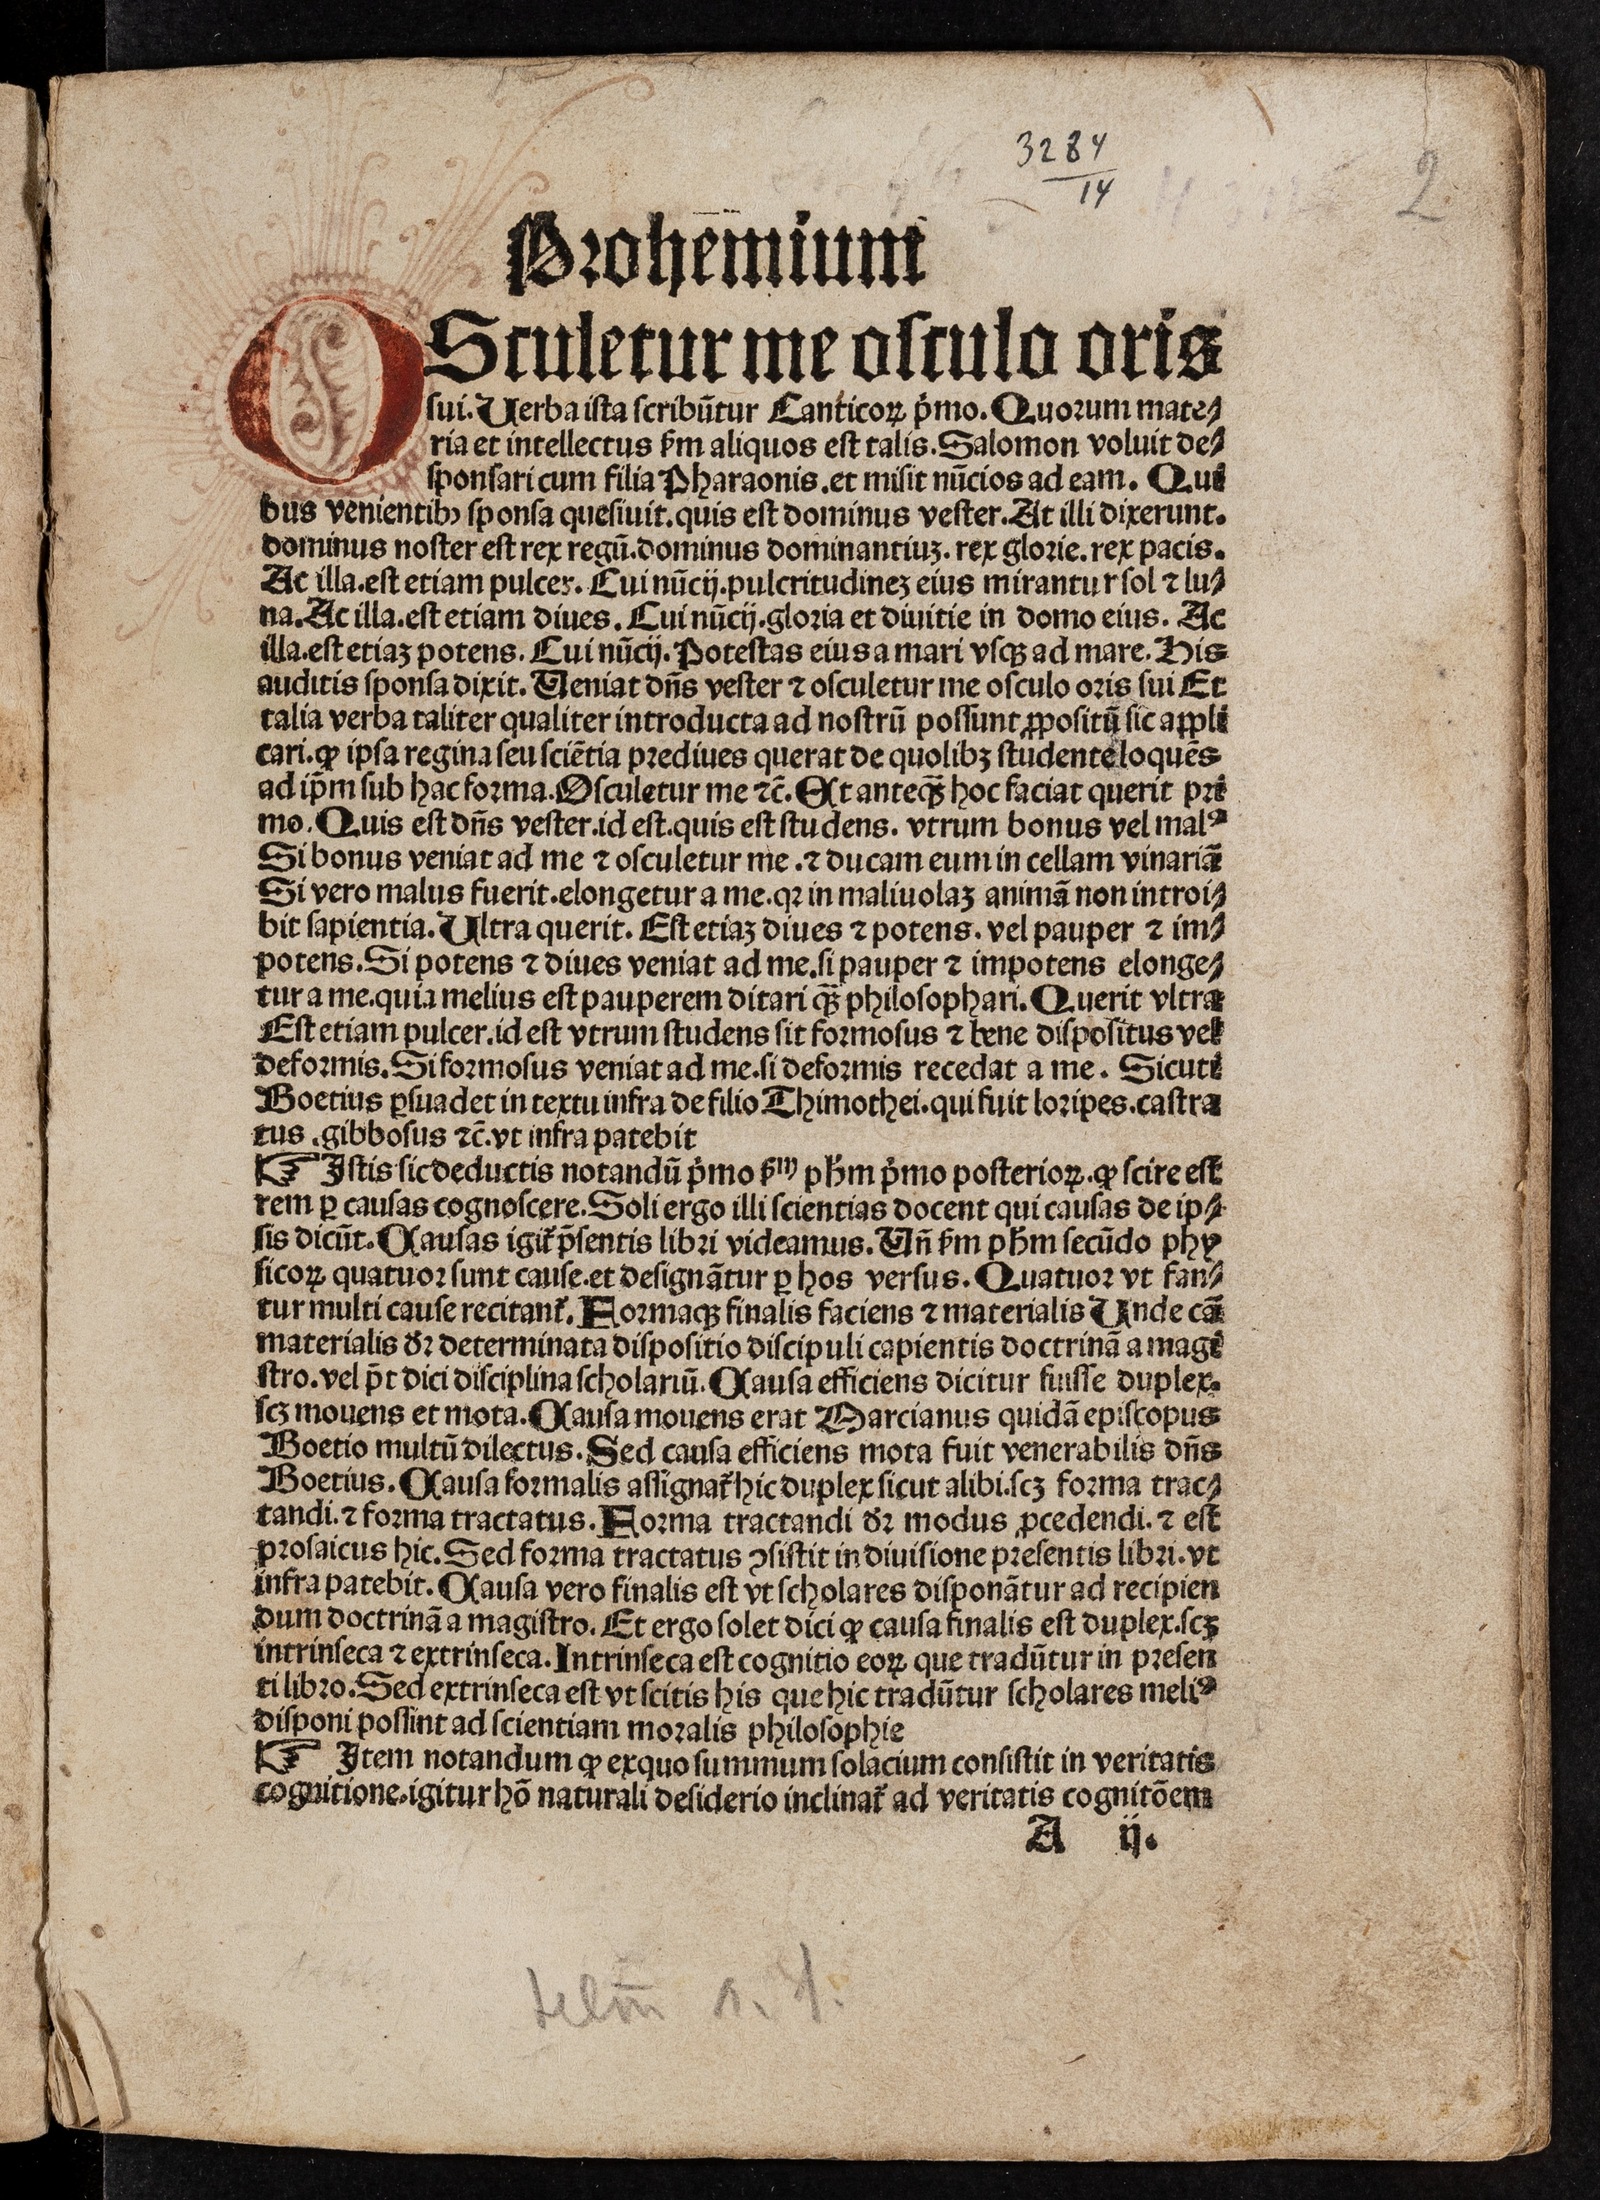 3284
14
2
Prohemium
OSculetur me osculo oris
sui. Verba ista scribūtur Canticoꝝ pͥmo. Quorum mate⸗
ria et intellectus ẜm aliquos est talis. Salomon voluit de⸗
sponsari cum filia Pharaonis. et misit nūcios ad eam. Qui
bus venientibꝰ sponsa quesiuit. quis est dominus vester. At illi dixerunt.
dominus noster est rex regū. dominus dominantiuꝫ. rex glorie. rex pacis.
Ac illa. est etiam pulcer. Cui nūcij. pulcritudineꝫ eius mirantur sol ⁊ lu⸗
na. Ac illa. est etiam diues. Cui nūcij. gloria et diuitie in domo eius. Ac
illa. est etiaꝫ potens. Cui nūcij. Potestas eius a mari vsqꝫ ad mare. His
auditis sponsa dixit. Veniat dn̄s vester ⁊ osculetur me osculo oris sui Et
talia verba taliter qualiter introducta ad nostrū possunt ꝓpositū sic appli
cari. ꝙ ipsa regina seu sciētia prediues querat de quolibꝫ studente loquēs
ad ip̄m sub hac forma. Osculetur me ⁊c̄. At anteqꝫ̄ hoc faciat querit pri
mo. Quis est dn̄s vester. id est. quis est studens. vtrum bonus vel malꝰ
Si bonus veniat ad me ⁊ osculetur me. ⁊ ducam eum in cellam vinariā
Si vero malus fuerit. elongetur a me. qꝛ in maliuolaꝫ animā non introi⸗
bit sapientia. Ultra querit. Est etiaꝫ diues ⁊ potens. vel pauper ⁊ im⸗
potens. Si potens ⁊ diues veniat ad me. si pauper ⁊ impotens elonge⸗
tur a me. quia melius est pauperem ditari qꝫ̄ philosophari. Querit vltra
Est etiam pulcer. id est vtrum studens sit formosus ⁊ bene dispositus vel
deformis. Si formosus veniat ad me. si deformis recedat a me. Sicuti
Boetius ꝑsuadet in textu infra de filio Thimothei. qui fuit loripes. castra
tus. gibbosus ⁊c̄. vt infra patebit
☞ Istis sic deductis notandū pͥmo ẜꝫ pħm pͥmo posterioꝝ. ꝙ scire est
rem ꝑ causas cognoscere. Soli ergo illi scientias docent qui causas de ip⸗
sis dicūt. Causas igit᷑ p̄sentis libri videamus. Vn̄ ẜm pħm secūdo phy
sicoꝝ quatuor sunt cause. et designātur ꝑ hos versus. Quatuor vt fan⸗
tur multi cause recitant᷑. Formaqꝫ finalis faciens ⁊ materialis Unde cā
materialis dꝛ̄ determinata dispositio discipuli capientis doctrinā a magi
stro. vel p̄t dici disciplina scholariū. Causa efficiens dicitur fuisse duplex.
scꝫ mouens et mota. Causa mouens erat Marcianus quidā episcopus
Boetio multū dilectus. Sed causa efficiens mota fuit venerabilis dn̄s
Boetius. Causa formalis assignat᷑ hic duplex sicut alibi. scꝫ forma trac⸗
tandi. ⁊ forma tractatus. Forma tractandi dꝛ̄ modus ꝓcedendi. ⁊ est
prosaicus hic. Sed forma tractatus ꝯsistit in diuisione presentis libri. vt
infra patebit. Causa vero finalis est vt scholares disponātur ad recipien
dum doctrinā a magistro. Et ergo solet dici ꝙ causa finalis est duplex. scꝫ
intrinseca ⁊ extrinseca. Intrinseca est cognitio eoꝝ que tradūtur in presen
ti libro. Sed extrinseca est vt scitis his que hic tradūtur scholares meliꝰ
disponi possint ad scientiam moralis philosophie
☞ Item notandum ꝙ exquo summum solacium consistit in veritatis
cognitione. igitur hō naturali desiderio inclinat᷑ ad veritatis cognitōem
A ij.